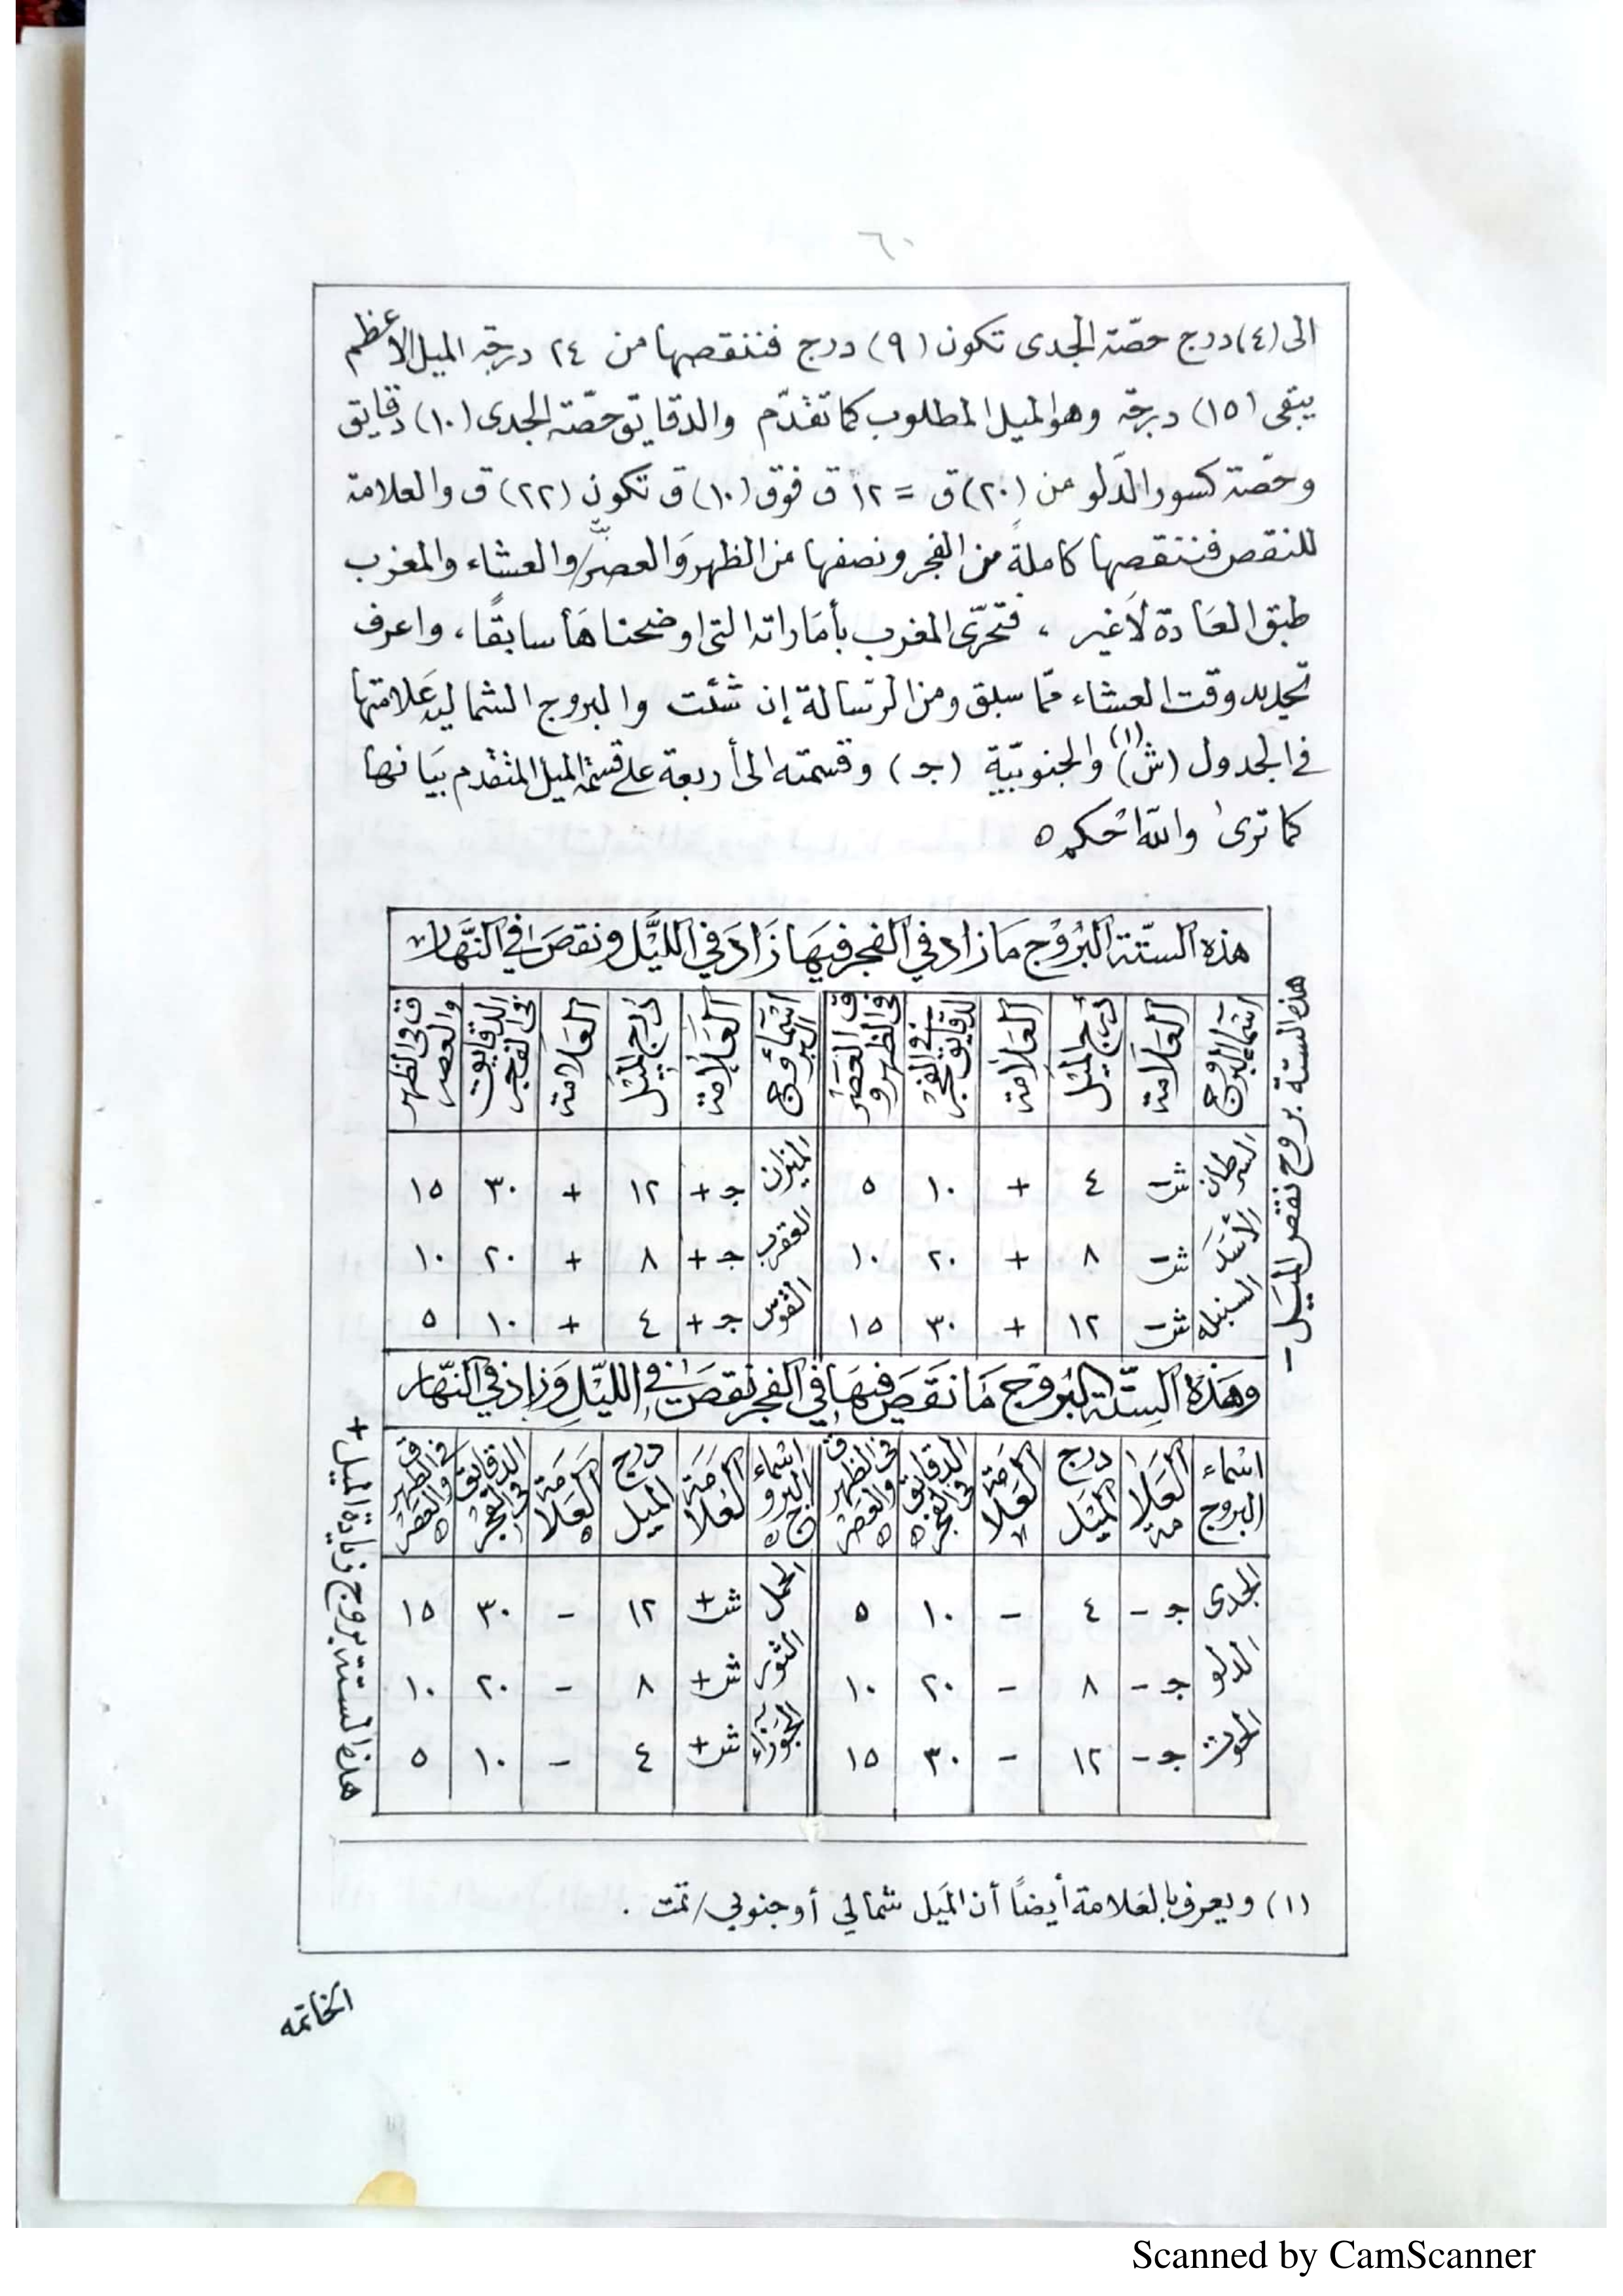 ٦٠
الى (٤) درج حصّة الجدى تكون (٩) درج فننقصها من ٢٤ درجة الميل الأعظم
يبقى (١٥) درجة وهو الميل المطلوب كما تقدّم والدقايق حصّة الجدى (١٠) دقايق
وحصّة كسور الدّلو من (٢٠) ق = ١٢ ق فوق (١٠) ق تكون (٢٢) ق والعلامة
للنقص فننقصها كاملةً من الفجر ونصفها من الظهر وَالعصر/ والعشاء والمغرب
طبق العَادة لاَغير ، فتحرّى المغرب بأمَاراته التى اوضحناهَا سابقًا، واعرف
تحديد وقت العشاء ممّا سبق ومن الرّسالة إن شئت والبروج الشماليه عَلامتها
فى الجدول (ش)(١) والجنوبيّة (جـ) وقسمته الى أربعة على قسمة الميل المتقدم بيَانها
كما ترى والله احْكم ه
هذه الستّة البُرُوْج مَا زاد في الفجر فيهَا زَادَ في اللَّيْل ونقصَ في النَّهَار
اسْمآء البرُوج | العَلاَمة | دَرج الميْل | العَلاَمة | الدقايق في الفجْر | ق فى الظهر و العصَر | اسْمآء البروج | العَلاَمة | دَرج الميْل | العَلاَمة | الدقايق فى الفجر | ق فى الظهر والعصر
السرطان | ش - | ٤ | + | ١٠ | ٥ | الميزان | جـ + | ١٢ | + | ٣٠ | ١٥
الأسَد | ش - | ٨ | + | ٢٠ | ١٠ | العقرب | جـ + | ٨ | + | ٢٠ | ١٠
السنبله | ش - | ١٢ | + | ٣٠ | ١٥ | القوْس | جـ + | ٤ | + | ١٠ | ٥
هذه الستة بروج نقص الميَل -
وَهَذهْ السِتّة البُرُوْج مَا نَقَصَ فيهَا في الفجر نقصَ في اللَّيْلِ وَزاد في النّهَار
اسْماء البروج | العَلا مة | درج الميْل | العَلاَمة | الدقايق في الفجر ه | ق فى الظهر والعَصْر ه | اسْماء البروج ه | العَلاَمَة | درج الميل | العَلاَمة ه | الدقايق فى الفجْر | ق فى الظهر والعَصْر ه
الجدى | جـ - | ٤ | - | ١٠ | ٥ | الحمل | ش + | ١٢ | - | ٣٠ | ١٥
الدلو | جـ - | ٨ | - | ٢٠ | ١٠ | الثور | ش + | ٨ | - | ٢٠ | ١٠
الحوت | جـ - | ١٢ | - | ٣٠ | ١٥ | الجَوْزاء | ش + | ٤ | - | ١٠ | ٥
هذه الستة بروج زيادة الميل +
(١) ويعرف بالعَلامة أيضًا أن المَيل شمالي أو جنوبي/ تمت .
الخاتمه
Scanned by CamScanner